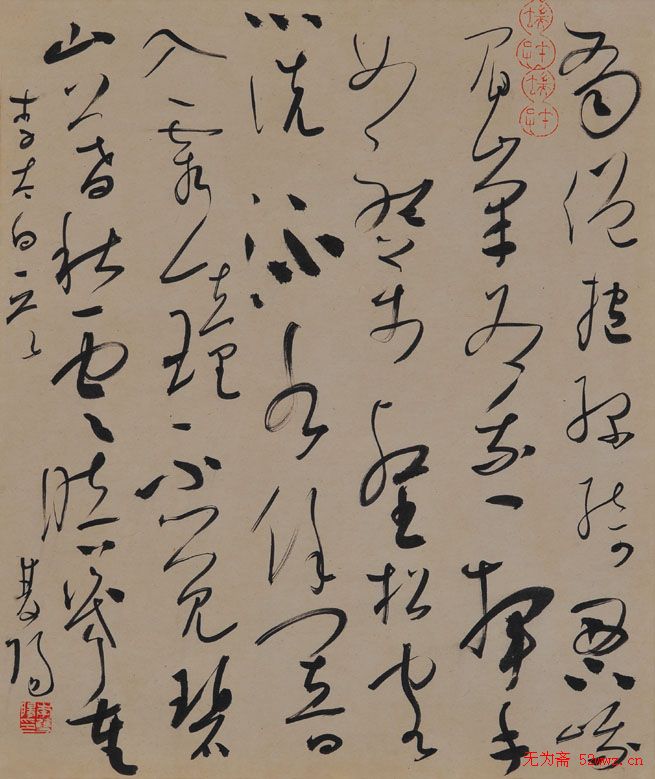 蜀僧抱綠綺西下峨
眉峰為我一揮手
如聽萬壑松客
心洗流水餘響
入霜鐘不覺碧
山暮秋雲暗幾重
李太白
无为斋 52wwz.cn